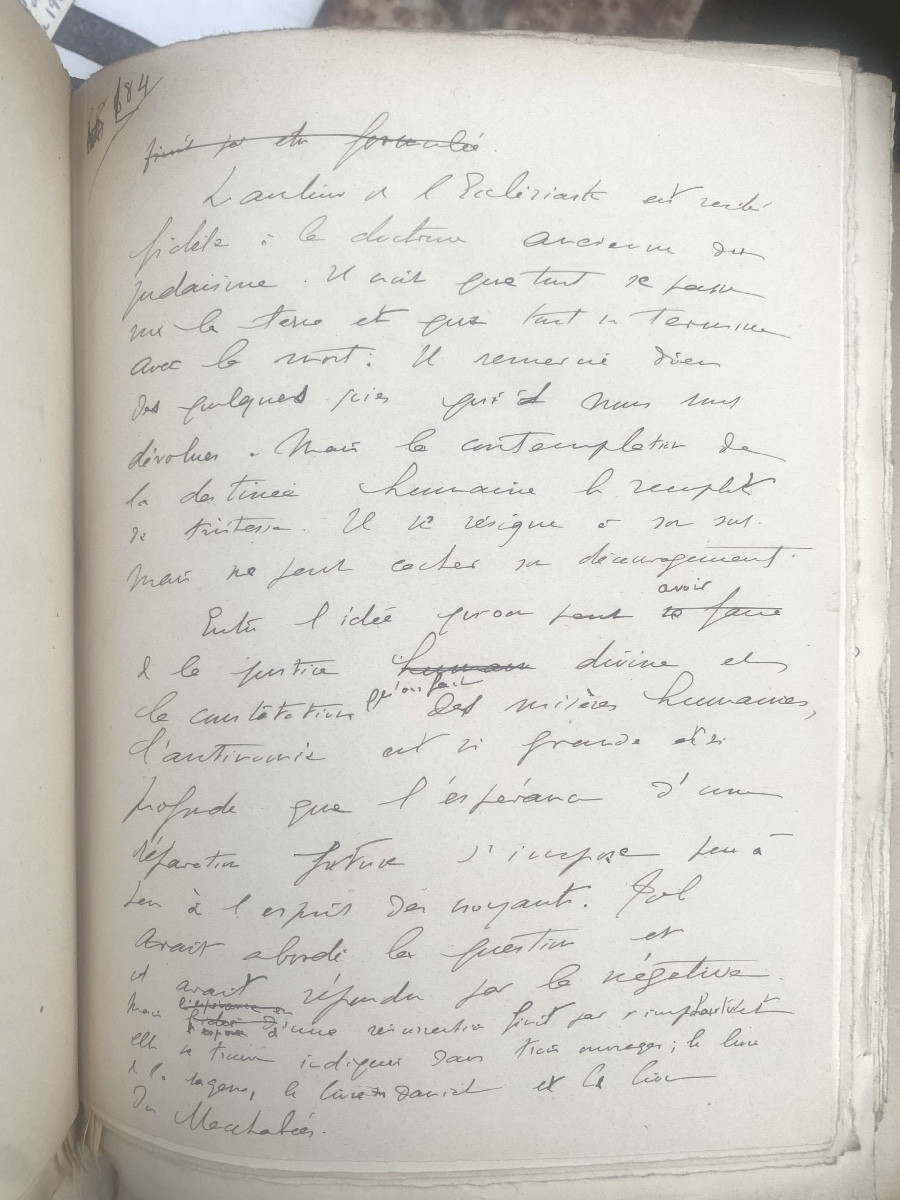 684
finit par être formulée.
L'auteur de l'Ecclésiaste est resté
fidèle à la doctrine ancienne du
judaïsme. Il croit que tout se passe
sur la terre et que tout se termine
avec la mort. Il remercie Dieu
des quelques joies qu'il nous sont
dévolues. Mais la contemplation de
la destinée humaine le remplit
de tristesse. Il se résigne à son sort
mais ne peut cacher son découragement.
Entre l'idée qu'on peut se faire avoir
de la justice humaine divine et
la constatation qu'on fait des misères humaines,
l'antinomie est si grande et si
profonde que l'espérance d'une
réparation future s'impose peu à
peu à l'esprit des croyants. Job
avait abordé la question et
il avait répondu par la négative.
Mais l'espérance en l'idée d' l'espoir d'une résurrection finit par s'implanter
elle se trouve indiquée dans trois ouvrages ; le livre
de la sagesse, le livre de Daniel et le livre
des Macchabées.